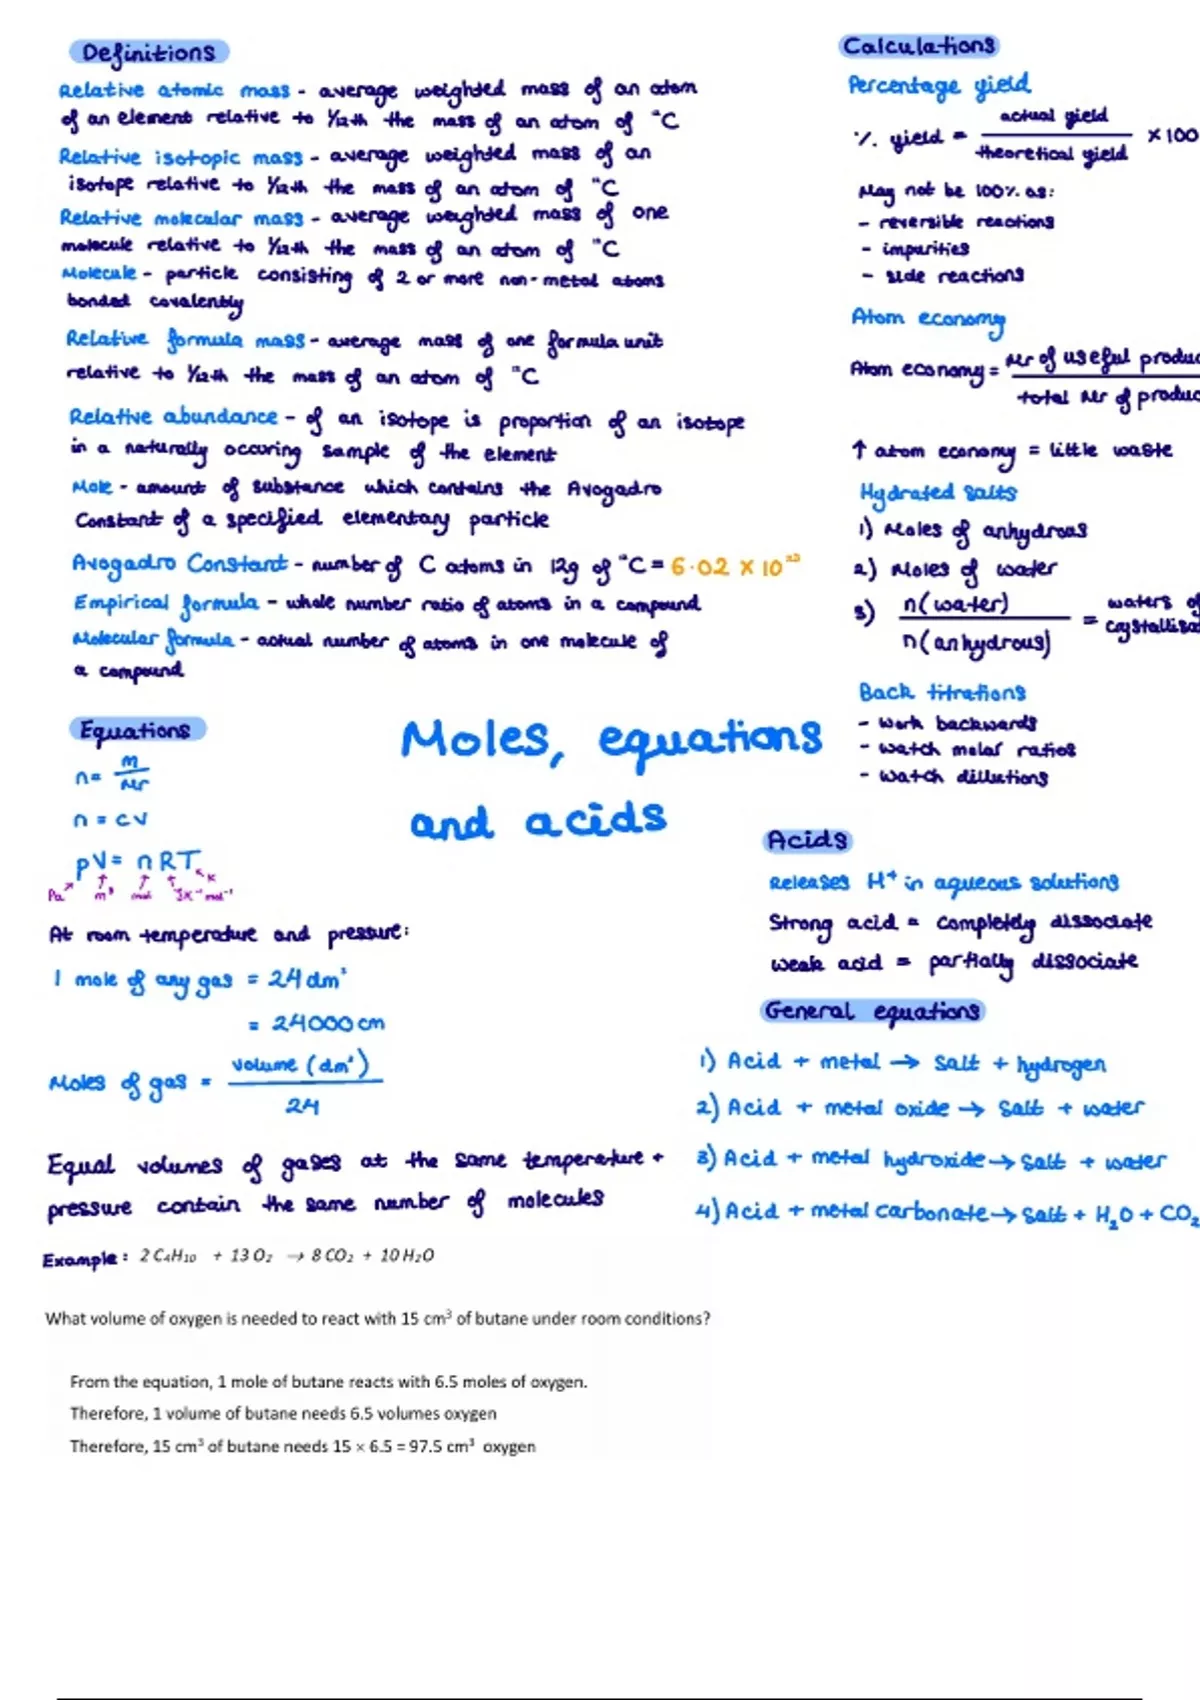 Definitions
Relative atomic mass - average weighted mass of an atom
of an element relative to 1/12th the mass of an atom of ¹²C
Relative isotopic mass - average weighted mass of an
isotope relative to 1/12th the mass of an atom of ¹²C
Relative molecular mass - average weighted mass of one
molecule relative to 1/12th the mass of an atom of ¹²C
Molecule - particle consisting of 2 or more non-metal atoms
bonded covalently
Relative formula mass - average mass of one formula unit
relative to 1/12th the mass of an atom of ¹²C
Relative abundance - of an isotope is proportion of an isotope
in a naturally occuring sample of the element
Mole - amount of substance which contains the Avogadro
Constant of a specified elementary particle
Avogadro Constant - number of C atoms in 12g of ¹²C = 6.02 × 10²³
Empirical formula - whole number ratio of atoms in a compound
Molecular formula - actual number of atoms in one molecule of
a compound
Calculations
Percentage yield
% yield = actual yield / theoretical yield × 100
May not be 100% as:
- reversible reactions
- impurities
- side reactions
Atom economy
Atom economy = Mr of useful produc / total Mr of produc
↑ atom economy = little waste
Hydrated salts
1) Moles of anhydrous
2) Moles of water
3) n(water) / n(anhydrous) = waters of
crystallisa
Back titrations
- work backwards
- watch molar ratios
- watch dillutions
Moles, equations
and acids
Equations
n = m / Mr
n = cV
pV = nRT
Pa m³ mol JK⁻¹mol⁻¹ K
At room temperature and pressure:
1 mole of any gas = 24 dm³
= 24000 cm
Moles of gas = volume (dm³) / 24
Equal volumes of gases at the same temperature +
pressure contain the same number of molecules
Acids
Releases H⁺ in aqueous solutions
Strong acid = completely dissociate
weak acid = partially dissociate
General equations
1) Acid + metal → salt + hydrogen
2) Acid + metal oxide → salt + water
3) Acid + metal hydroxide → salt + water
4) Acid + metal carbonate → salt + H₂O + CO₂
Example: 2 C₄H₁₀ + 13 O₂ → 8 CO₂ + 10 H₂O
What volume of oxygen is needed to react with 15 cm³ of butane under room conditions?
From the equation, 1 mole of butane reacts with 6.5 moles of oxygen.
Therefore, 1 volume of butane needs 6.5 volumes oxygen
Therefore, 15 cm³ of butane needs 15 × 6.5 = 97.5 cm³ oxygen